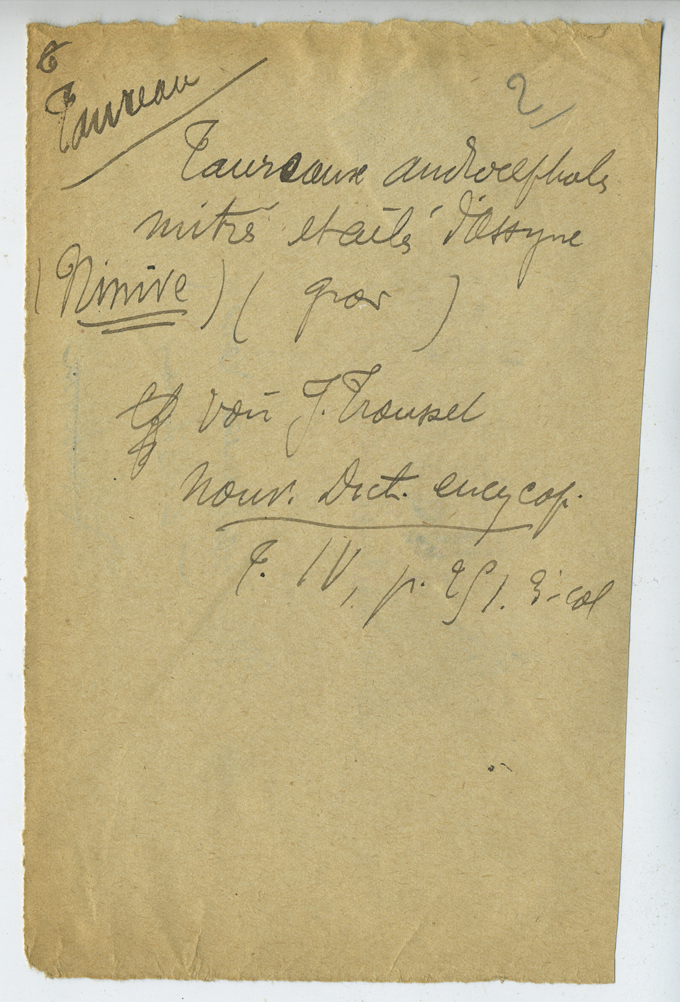 T
Taureau
2
Taureaux androcéphals
mitrés et ailés d'Assyrie
(Ninive) (grav)
voir J. Trousset
Nouv. Dict. encycop.
T. IV, p. 251. 3e col